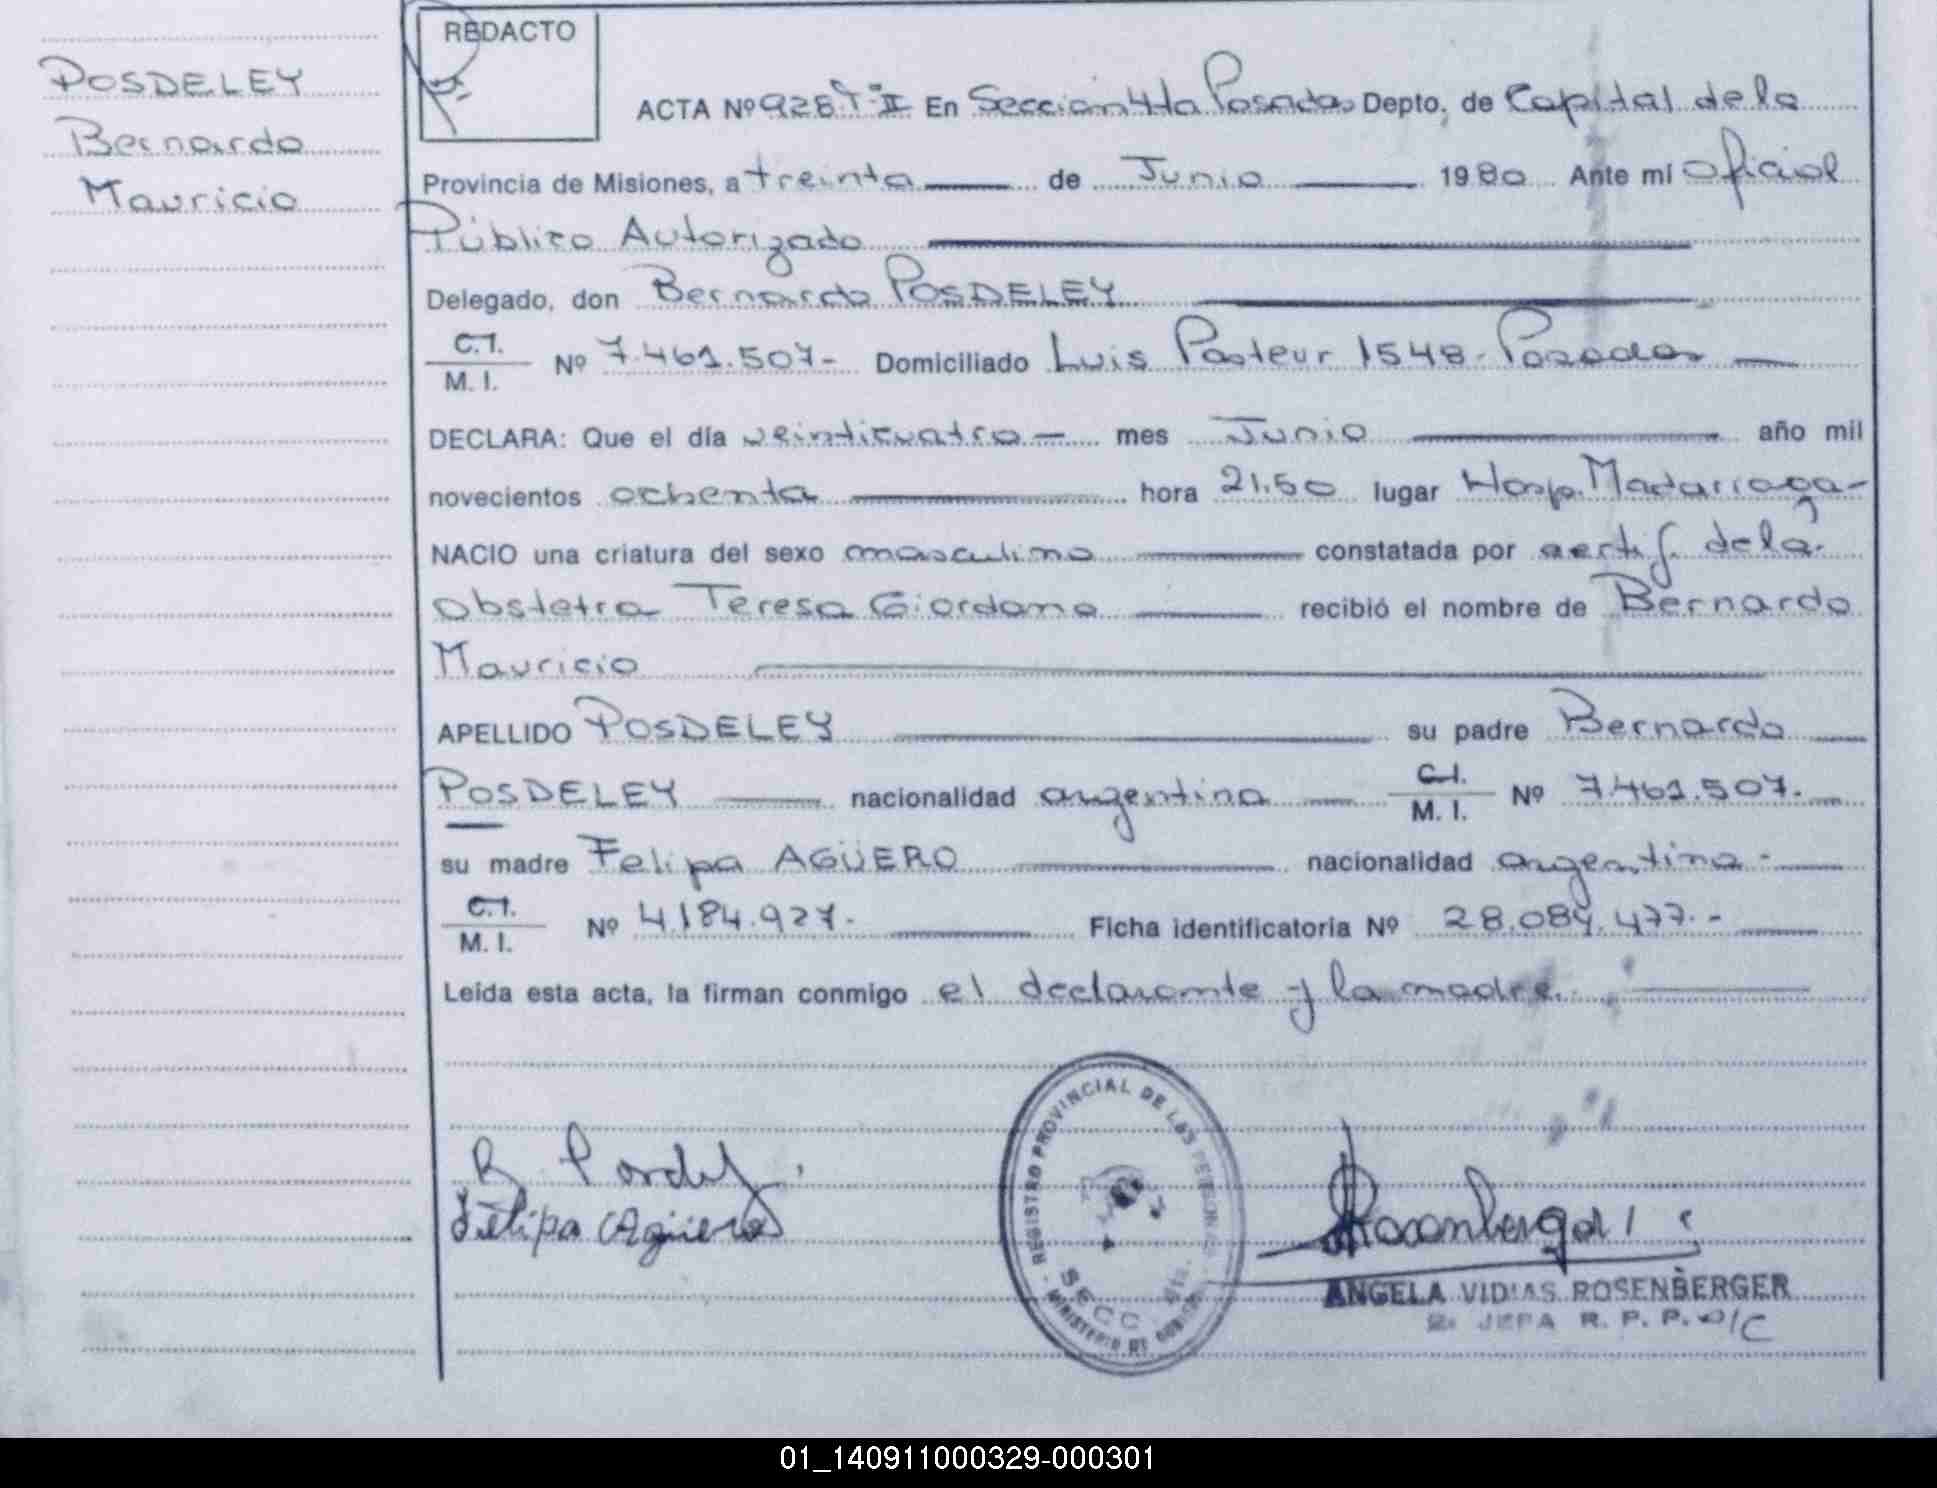 POSDELEY
Bernardo
Mauricio
REDACTO
ACTA Nº 928 T-II En Seccion 4ta Posadas Depto, de Capital de la
Provincia de Misiones, a treinta de Junio 1980 Ante mí Oficial
Público Autorizado
Delegado, don Bernardo POSDELEY
C.I.
M. I. Nº 7.461.507- Domiciliado Luis Pasteur 1548- Posadas
DECLARA: Que el día veinticuatro mes Junio año mil
novecientos ochenta hora 21.50 lugar Hosp. Madarriaga-
NACIO una criatura del sexo masculino constatada por certif. de la
obstetra Teresa Giordano recibió el nombre de Bernardo
Mauricio
APELLIDO POSDELEY su padre Bernardo
POSDELEY nacionalidad argentina C.I. M. I. Nº 7.461.507.
su madre Felipa AGÜERO nacionalidad argentina-
C.I.
M. I. Nº 4.184.927. Ficha identificatoria Nº 28.084.477.-
Leída esta acta, la firman conmigo el declarante y la madre.
REGISTRO PROVINCIAL DE LAS PERSONAS
SECC 4ta.
MINISTERIO DE GOBIERNO
Felipa Agüero
ANGELA VIDIAS ROSENBERGER
JEFA R. P. P. A/C
01_140911000329-000301